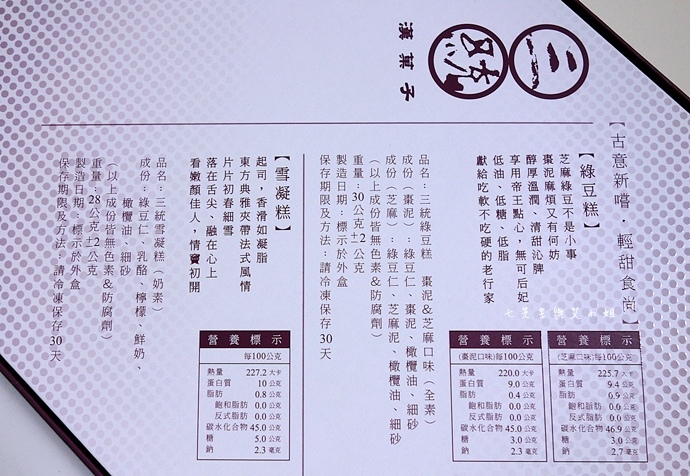 三統
漢菓子
【古意新嚐・輕甜食尚】
【綠豆糕】
芝麻綠豆不是小事
棗泥麻煩又有何妨
醇厚溫潤、清甜沁脾
享用帝王點心，無可后妃
低油、低糖、低脂
獻給吃軟不吃硬的老行家
品名：三統綠豆糕　棗泥&芝麻口味（全素）
成份（棗泥）：綠豆仁、棗泥、橄欖油、細砂
成份（芝麻）：綠豆仁、芝麻泥、橄欖油、細砂
（以上成份皆無色素&防腐劑）
重量：30公克±2公克
製造日期：標示於外盒
保存期限及方法：請冷凍保存30天
【雪凝糕】
起司，香滑如凝脂
東方典雅夾帶法式風情
片片初春細雪
落在舌尖、融在心上
看嫩顏佳人，情竇初開
品名：三統雪凝糕（奶素）
成份：綠豆仁、乳酪、檸檬、鮮奶、
橄欖油、細砂
（以上成份皆無色素&防腐劑）
重量：28公克±2公克
製造日期：標示於外盒
保存期限及方法：請冷凍保存30天
營養標示
每100公克
熱量 227.2 大卡
蛋白質 10 公克
脂肪 0.8 公克
飽和脂肪 0.0 公克
反式脂肪 0.0 公克
碳水化合物 45.0 公克
糖 5.0 公克
鈉 2.3 毫克
營養標示
(棗泥口味)每100公克
熱量 220.0 大卡
蛋白質 9.0 公克
脂肪 0.4 公克
飽和脂肪 0.0 公克
反式脂肪 0.0 公克
碳水化合物 45.0 公克
糖 3.0 公克
鈉 2.3 毫克
營養標示
(芝麻口味)每100公克
熱量 225.7 大卡
蛋白質 9.4 公克
脂肪 0.9 公克
飽和脂肪 0.0 公克
反式脂肪 0.0 公克
碳水化合物 46.9 公克
糖 3.0 公克
鈉 2.7 毫克